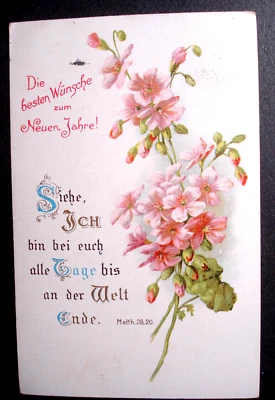 Die
besten Wünsche
zum
Neuen Jahre!
Siehe,
ICH
bin bei euch
alle Tage bis
an der Welt
Ende.
Matth. 28, 20.